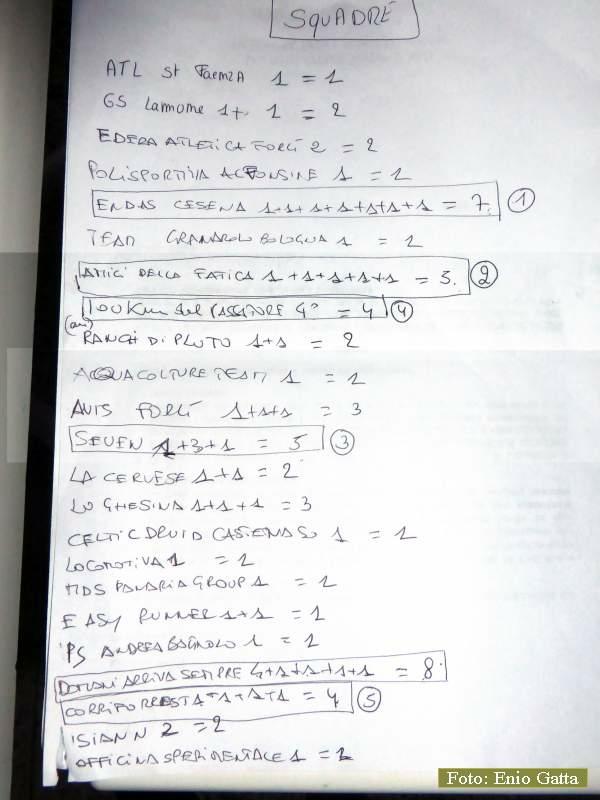 SQUADRE
ATL st Faenza 1 = 1
GS Lamone 1+ 1 = 2
EDERA ATLETICA FORLÌ 2 = 2
POLISPORTIVA ALFONSINE 1 = 1
ENDAS CESENA 1+1+1+1+1+1+1 = 7 ①
TEAM GRANAROLO BOLOGNA 1 = 1
AMICI DELLA FATICA 1+1+1+1+1 = 5 ②
100 Km del PASSATORE 4° = 4 ④
(an)
RANCH DI PLUTO 1+1 = 2
ACQUACOLTURE TEAM 1 = 1
AVIS FORLÌ 1+1+1 = 3
SEVEN 1+3+1 = 5 ③
LA CERVESE 1+1 = 2
LUGHESINA 1+1+1 = 3
CELTIC DRUID CASTENASO 1 = 1
LOCOMOTIVA 1 = 1
MDS PANARIA GROUP 1 = 1
EASY RUNNER 1+1 = 1
PS ANDREA BAGNOLO 1 = 1
DOMANI ARRIVA SEMPRE 4+1+1+1+1 = 8
CORRIFORREST 1+1+1+1 = 4 ⑤
ISIANN 2 = 2
OFFICINA SPERIMENTALE 1 = 1
Foto: Enio Gatta